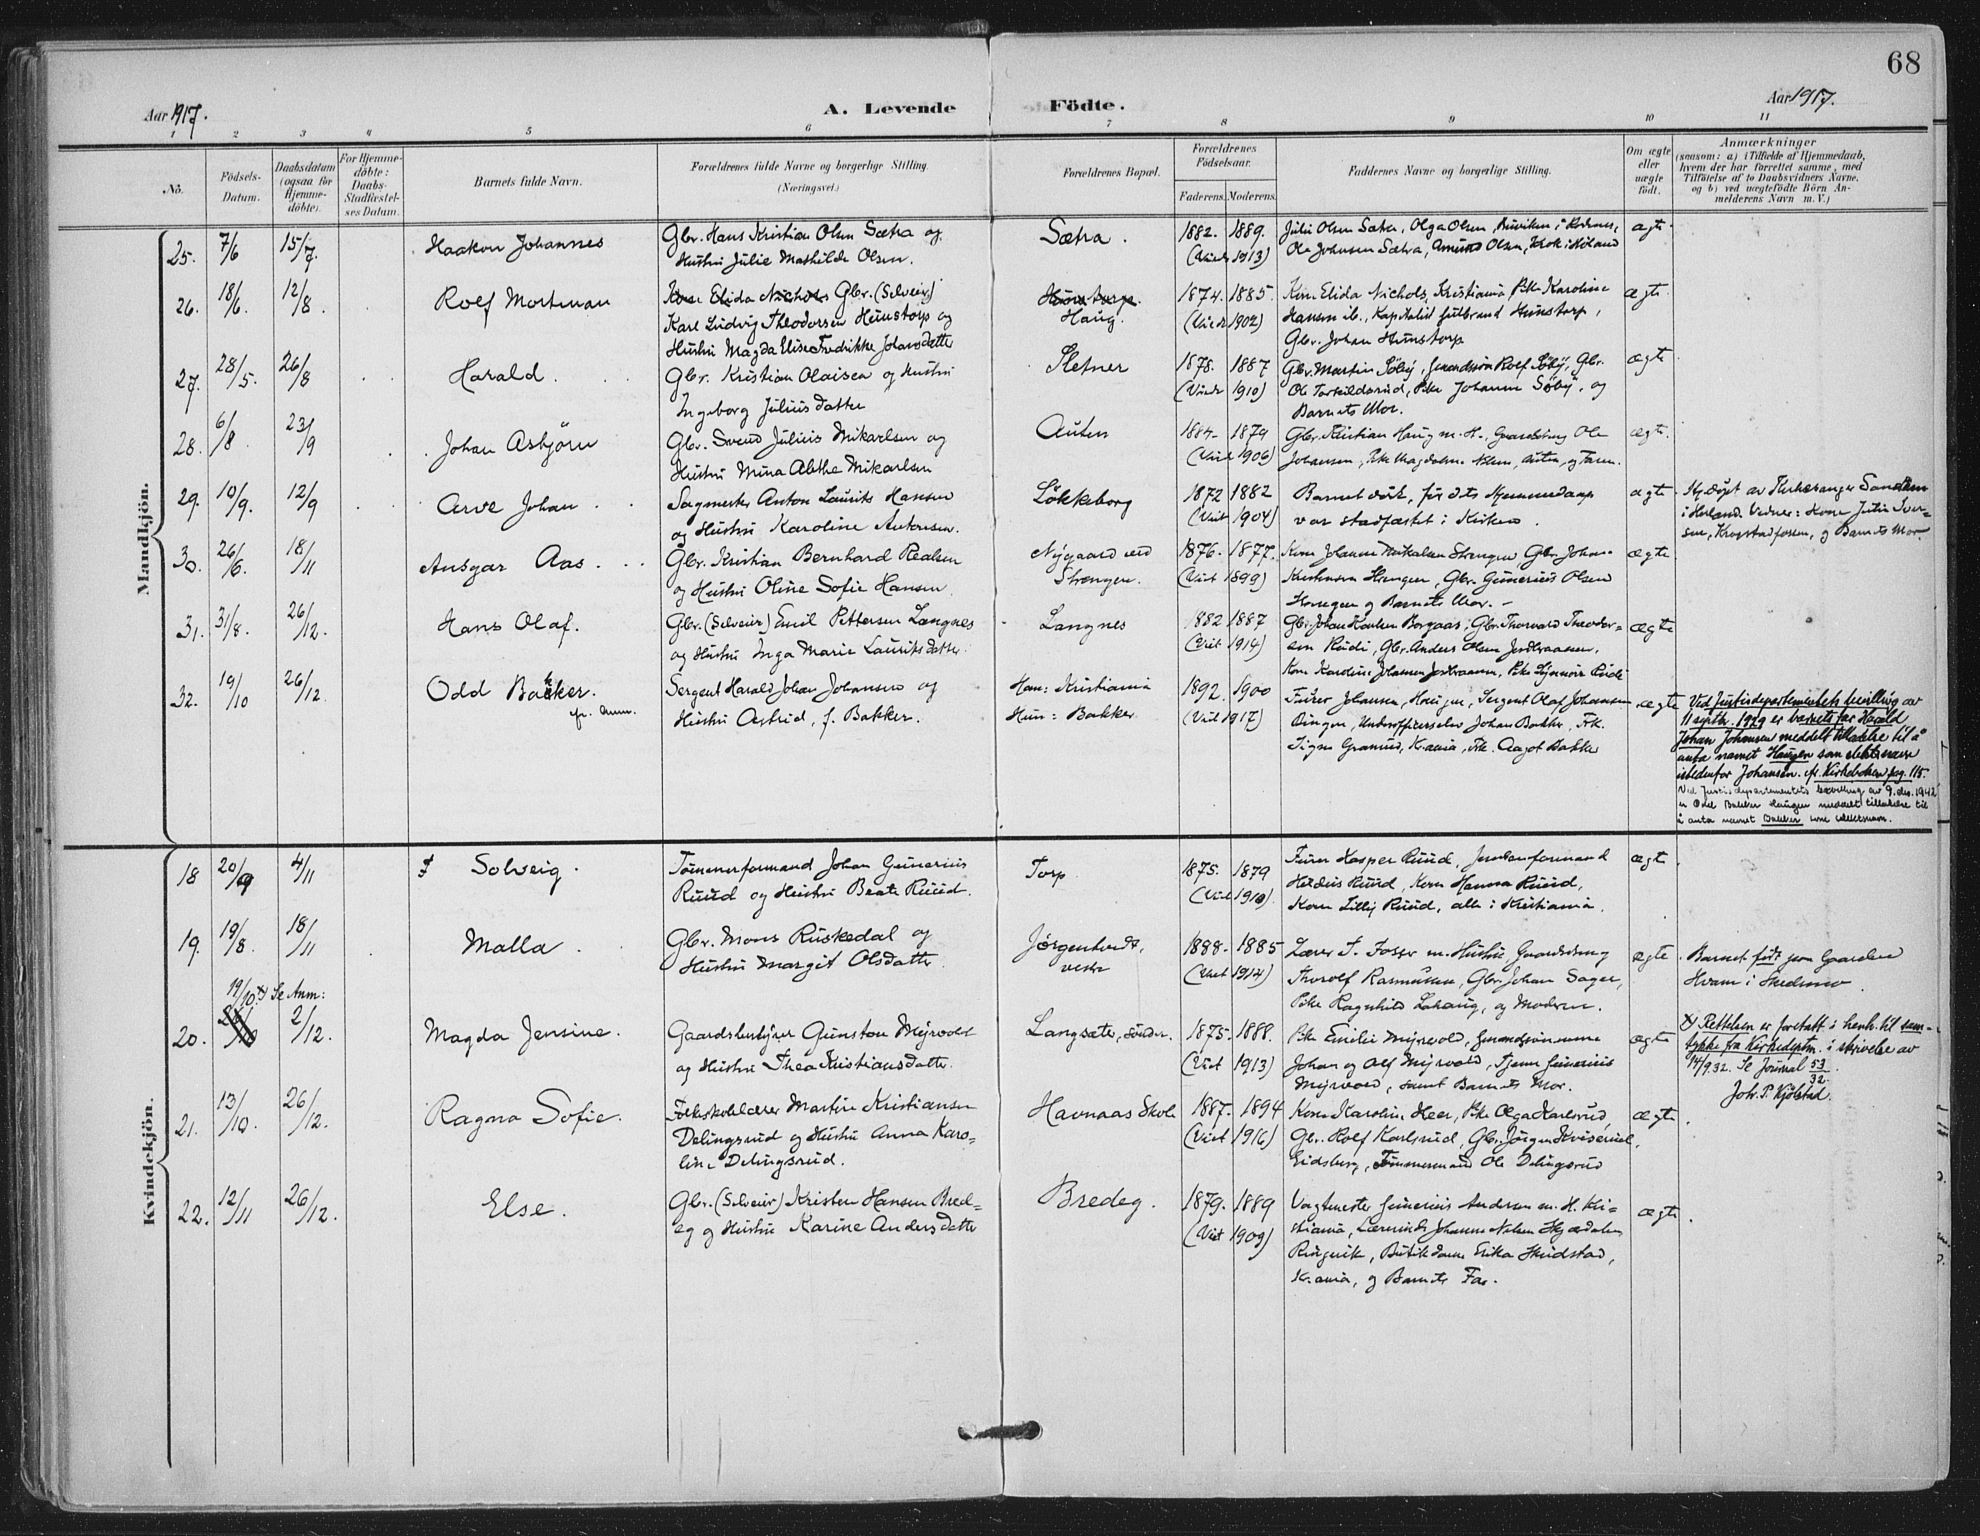 68
Aar 1917.
A. Levende Födte.
Aar 1917.
1 2 3 4 5 6 7 8 9 10 11
No.
Födsels-Datum.
Daabsdatum (ogsaa for Hjemme-döbte).
For Hjemme-döbte: Daabs-Stadfæstel-ses Datum.
Barnets fulde Navn.
Forældrenes fulde Navne og borgerlige Stilling. (Næringsvei.)
Forældrenes Bopæl.
Forældrenes Födselsaar.
Faderens. Moderens.
Faddernes Navne og borgerlige Stilling.
Om ægte eller uægte födt.
Anmærkninger
(saasom: a) i Tilfælde af Hjemmedaab,
hvem der har forrettet samme, med
Tilföielse af to Daabsvidners Navne,
og b) ved uægtefödte Börn An-
melderens Navn m. V.)
Mandkjön.
25. 7/6 15/7. Haakon Johannes
Gbr. Hans Kristian Olsen Sætra og
Hustru Julie Mathilde Olsen.
Sætra.
1882. 1889.
(Viede 1913)
Julie Olsen Sætra, Olga Olsen,
Ole Johansen Sætra, Amund Olsen, Krok i Höland
ægte.
26. 18/6. 12/8. Rolf Mortman
Kone Elida Nichols Gbr. (Selveier)
Karl Ludvig Theodorsen Hunstorp og
Hustru Magda Elise Fredrikke Johansdatter
Hunstorp.
Haug.
1874. 1885.
(Viede 1902)
Kone Elida Nichols, Kristiania, Pike Karoline
Hansen ib., Kapitalist Gulbrand Hunstorp,
Gbr. Johan Hunstorp
ægte.
27. 28/5. 26/8 Harald.
Gbr. Kristian Olaisen og Hustru
Ingeborg Juliusdatter
Sletner
1878. 1887
(Viede 1910)
Gbr. Martin Söby, Gaardssön Rolf Söby, Gbr.
Ole Torkildsrud, Pike Johanne Söby, og
Barnets Mor.
ægte
28. 6/8 23/9 Johan Asbjörn
Gbr. Svend Julius Mikarlsen og
Hustru Mina Alethe Mikarlsen
Auten
1884. 1879
(Viet 1906)
Gbr. Kristian Haug m. H., Gaardsdreng Ole
Johansen, Pike Magdalene Nilsen, Auten, og Faren.
ægte.
29. 10/9. 12/9 Arve Johan
Sagmester Anton Laurits Hansen
og Hustru Karoline Antonsen.
Lökkeborg
1872 1882
(Viet 1904)
Barnet död, för dets Hjemmedaap
var stadfæstet i Kirken.
ægte.
Hj.döpt av Kirkesanger Sandem
i Höland. Vidner: Kone Julie Iver-
sen, Krogstadfossen, og Barnets Mor
30. 26/6. 18/11 Ansgar Aas.
Gbr. Kristian Bernhard Realsen
og Hustru Oline Sofie Hansen.
Nygaard ved
Strengen.
1876. 1877.
(Viet 1899)
Kone Johanne Mikalsen Strengen, Gbr. Johan
Kristiansen Strengen, Gbr. Gunerius Olsen
og Barnets Mor.
ægte.
31. 31/8. 26/12. Hans Olaf.
Gbr. (Selveier) Emil Pettersen Langnes
og Hustru Inga Marie Lauritsdatter.
Langnes
1882 1887
(Viet 1914)
Gbr. Johan Karlsen Borgaas, Gbr. Thorvald Theodor-
sen Rudi, Gbr. Anders Olsen Jordbraaten,
Kone Karoline Johansen Jordbraaten, Pike Rudi
ægte
32. 19/10 26/12. Odd Bakker.
cfr. Anm.
Sergent Harald Johan Johansen og
Hustru Astrid, f. Bakker.
Han: Kristiania
Hun: Bakker
1892. 1900
(Viet 1917)
Furer Johansen, Haugen, Sergent Olaf Johansen
Bingen, Underofficerselev Johan Bakker, Frk.
Signe Granrud, Kr.ania, Frk. Aagot Bakker
ægte
Ved Justisdepartementets bevilling av
11 septbr. 1929 er barnets far Harald
Johan Johansen meddelt tilladelse til å
anta navnet Haugen som slektsnavn
istedenfor Johansen. cfr. Kirkeboken pag. 115.
Ved Justisdepartementets bevilling av 9. des. 1942
er Odd Bakker Haugen meddelt tillatelse til
å anta navnet Bakker som slektsnavn.
Kvindekjön.
18 20/9 4/11 † Solveig.
Tömmerformand Johan Gunerius
Ruud og Hustru Beate Ruud.
Torp
1875. 1879
(Viet 1910)
Furer Kasper Ruud, Jernbaneformand
Ruud, Kone Hanna Ruud,
Kone Lilly Ruud, alle i Kristiania.
ægte
19. 19/8. 18/11 Malla.
Gbr. Mons Ruskedal og
Hustru Margit Olsdatter
Jörgentvedt,
vestre
1888. 1885
(Viet 1914)
Lærer J. Fosser m. Hustru, Gaardsdreng
Thorolf Rasmussen, Gbr. Johan Sager,
Pike Ragnhild Lahaug, og Moderen.
ægte.
Barnet födt paa Gaarden
Hvam i Skedsmo.
20. 19/10 x) Se Anm: 26/10 2/12. Magda Jensine.
Gaardsbestyrer Gunston Myrvold
og Hustru Thea Kristiansdatter.
Langsæter, söndre.
1875. 1888.
(Viet 1913)
Pike Emilie Myrvold, Gaardssönnerne
Johan og Olf Myrvold, Gunerius
Myrvold, samt Barnets Mor.
ægte
x) Rettelsen er foretatt i henh. til sam-
tykke fra Kirkedeptm. i skrivelse av
14/9.32. Se Journal 53/32.
Joh. P. Kjölstad.
21. 13/10. 26/12. Ragna Sofie.
Folkeskolelærer Martin Kristiansen
Delingsrud og Hustru Anna Karo-
line Delingsrud.
Havnaas Skole
1887. 1894
(Viet 1916)
Kone Karoline Heer, Pike Olga Karlsrud,
Gbr. Rolf Karlsrud, Gbr. Jörgen Kviserud,
Eidsberg, Tömmermand Ole Delingsrud
ægte.
22. 12/11 26/12. Else.
Gbr. (Selveier) Kristen Hansen Bred-
eg og Hustru Karine Andersdatter
Bredeg.
1879. 1889
(Viet 1909)
Vagtmester Gunerius Andersen m. H. Kri-
stiania, Lærerinde Johanne Nilsen
Ringerik, Butikdame Erika Skudstad,
Kr.ania, og Barnets Far.
ægte.